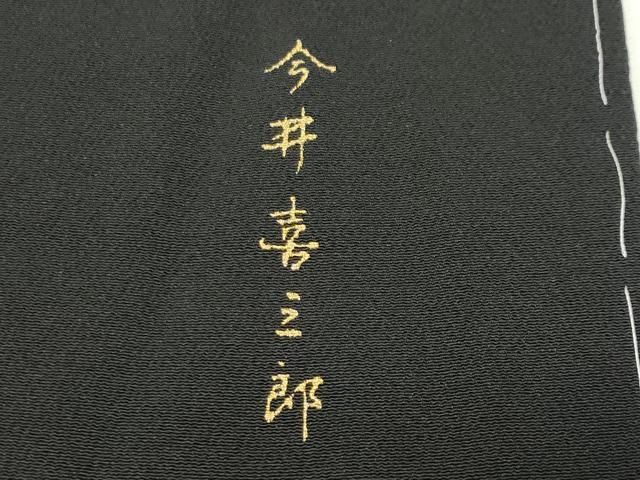 今井喜三郎